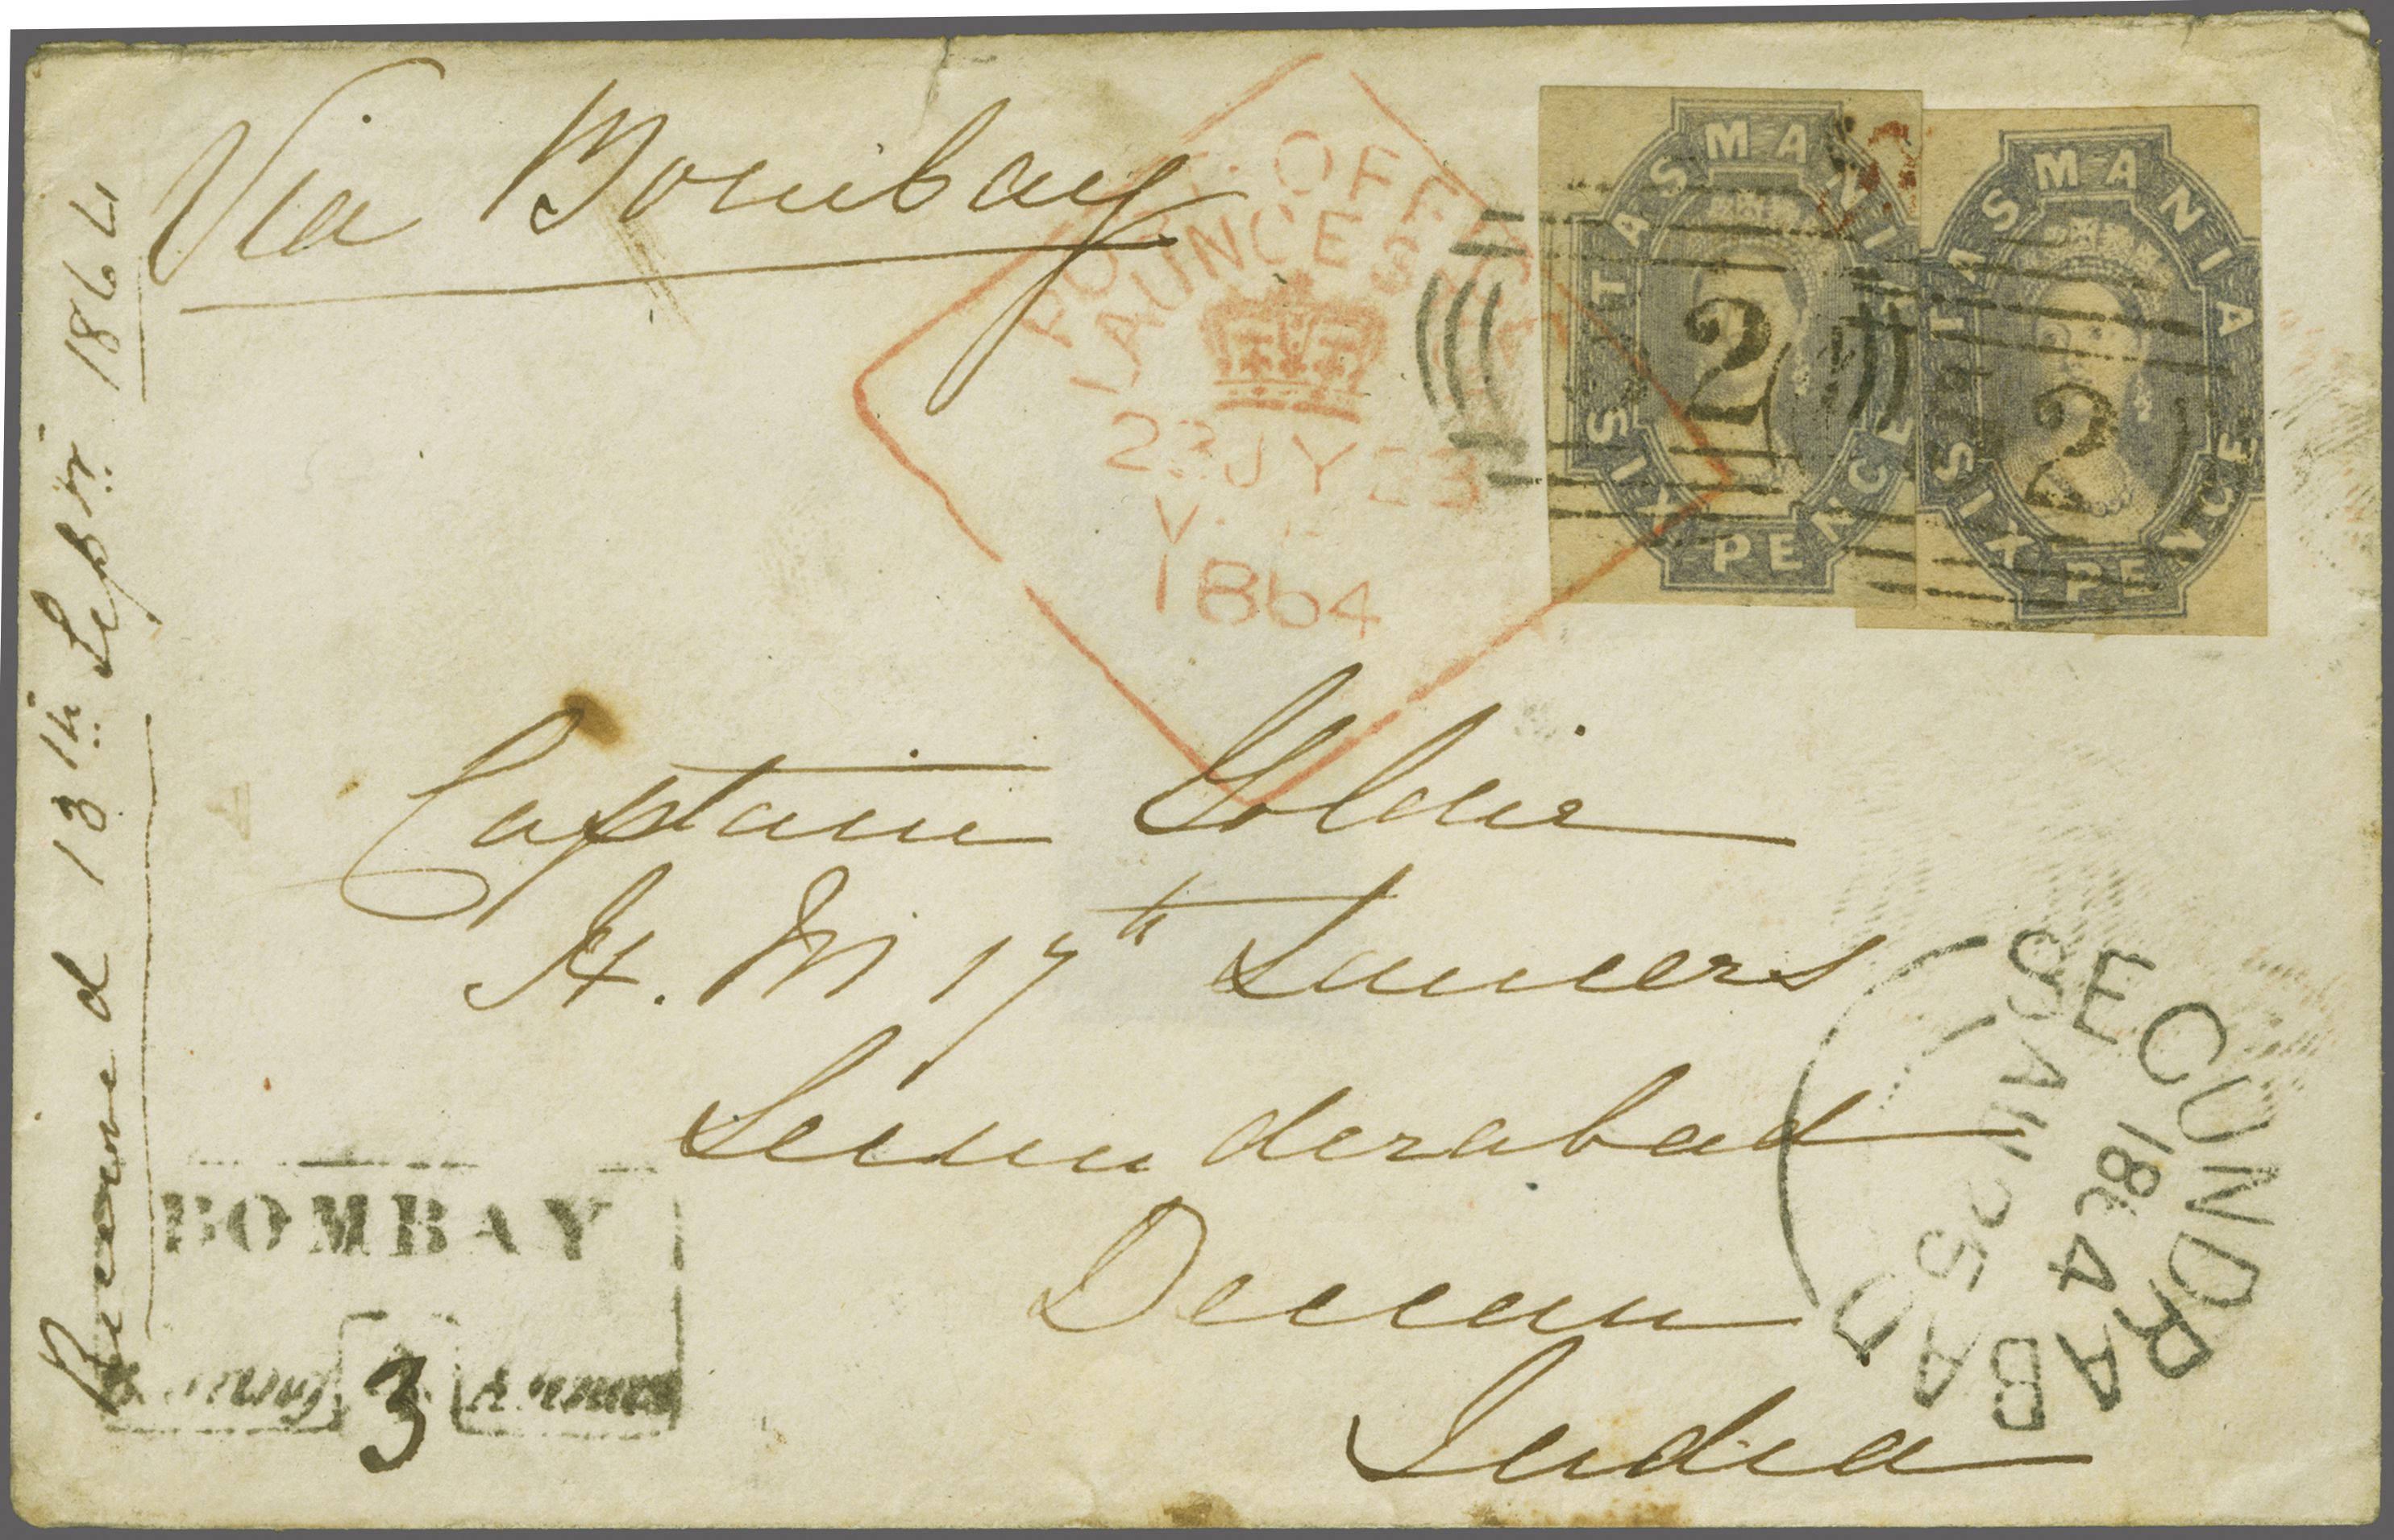 Via Bombay
POST OFFICE
LAUNCESTON
23 JY 23
V.
1864
TASMANIA
SIX PENCE
2
TASMANIA
SIX PENCE
2
Received 13th Septr 1864
Captain Goldie
H. M 17th Lancers
Secunderabad
Deccan
India
BOMBAY
3 Annas
SECUNDRABAD
1864